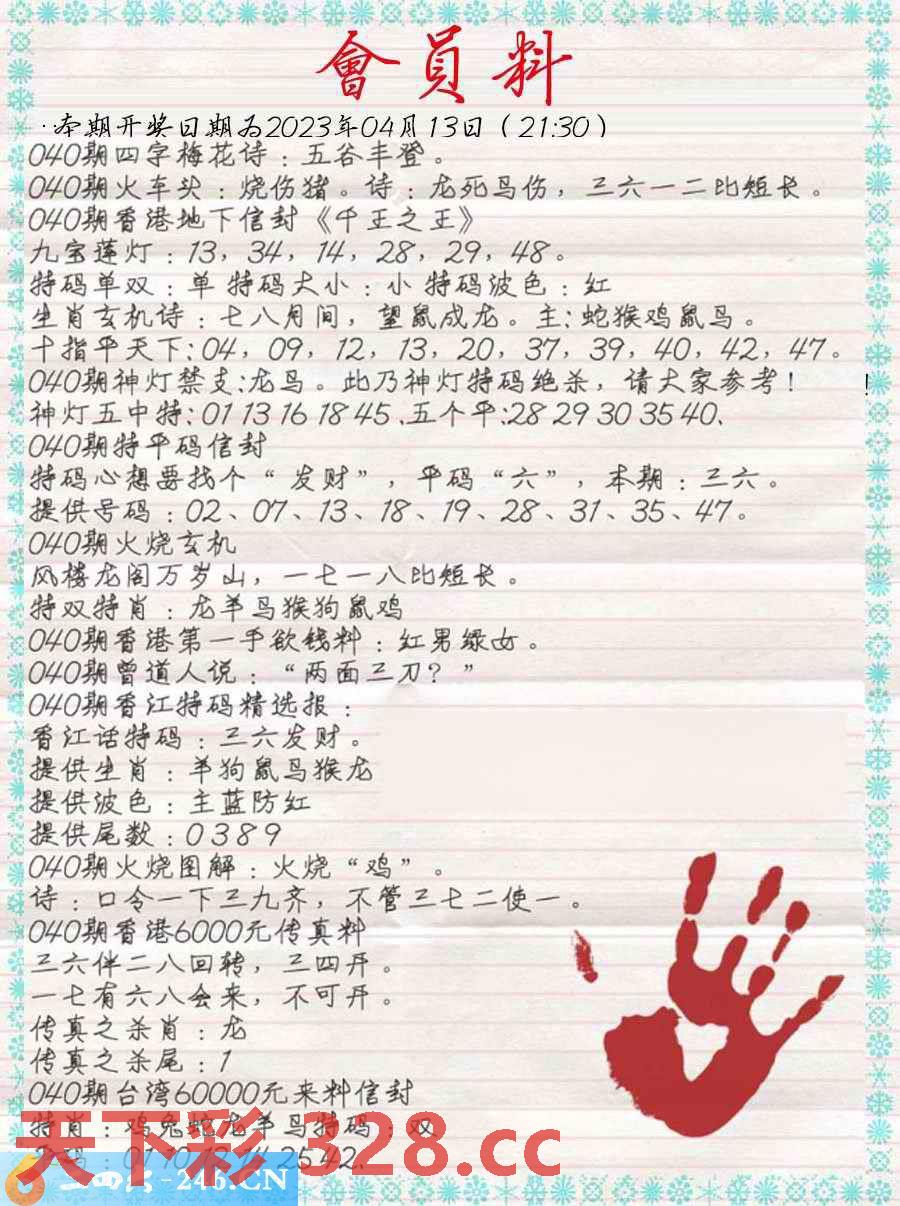 會員料
·本期开奖日期为2023年04月13日（21:30）
040期四字梅花诗：五谷丰登。
040期火车头：烧伤猪。诗：龙死马伤，三六一二比短长。
040期香港地下信封《千王之王》
九宝莲灯：13，34，14，28，29，48。
特码单双：单 特码大小：小 特码波色：红
生肖玄机诗：七八月间，望鼠成龙。主:蛇猴鸡鼠马。
十指平天下:04，09，12，13，20，37，39，40，42，47。
040期神灯禁支:龙马。此乃神灯特码绝杀，请大家参考！ !
神灯五中特:01 13 16 18 45 .五个平:28 29 30 35 40、
040期特平码信封
特码心想要找个“发财”，平码“六”，本期：三六。
提供号码：02、07、13、18、19、28、31、35、47。
040期火烧玄机
风楼龙阁万岁山，一七一八比短长。
特双特肖：龙羊马猴狗鼠鸡
040期香港第一手欲钱料：红男绿女。
040期曾道人说：“两面三刀？”
040期香江特码精选报：
香江话特码：三六发财。
提供生肖：羊狗鼠马猴龙
提供波色：主蓝防红
提供尾数：0 3 8 9
040期火烧图解：火烧“鸡”。
诗：口令一下三九齐，不管三七二使一。
040期香港6000元传真料
三六伴二八回转，三四开。
一七有六八会来，不可开。
传真之杀肖：龙
传真之杀尾：1
040期台湾60000元来料信封
特肖：鸡兔蛇龙羊马特码：双
01 10 12 14 25 42、
天下彩 328.cc
-246.CN